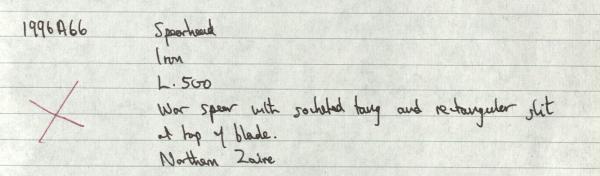 1996A66 Spearhead
Iron
L. 500
War spear with socketed tang and rectangular slit
at top of blade.
Northern Zaire